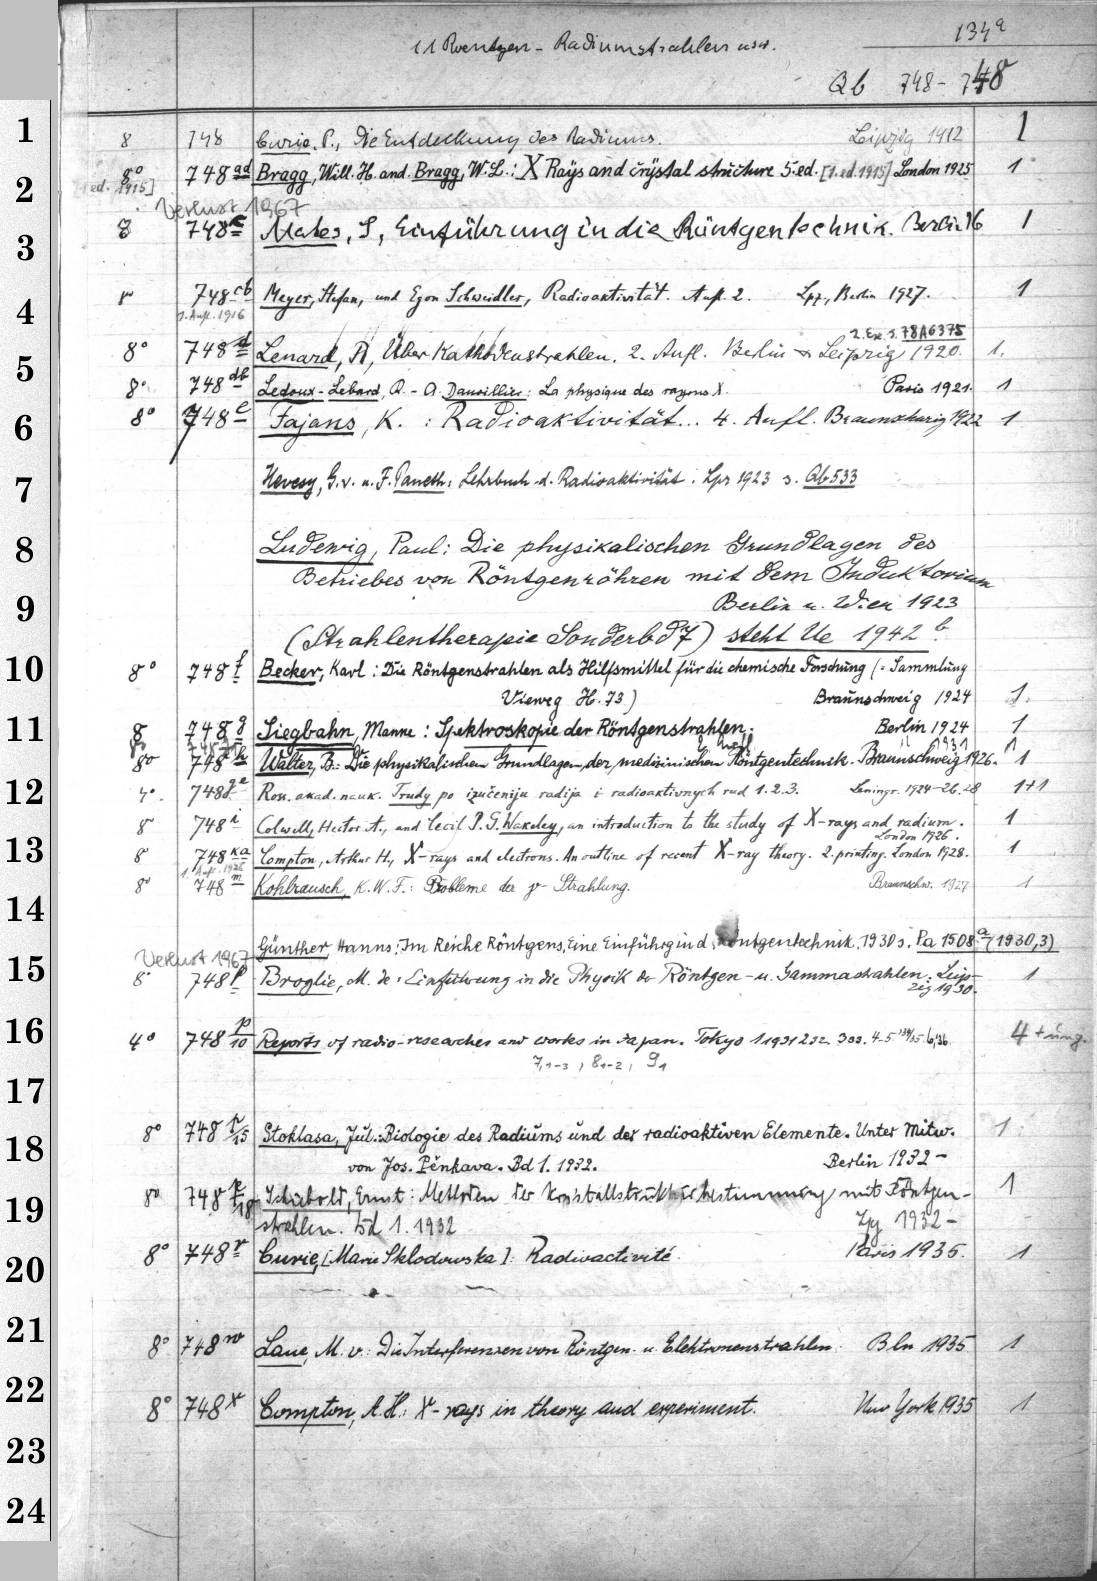 11 Roentgen-Radiumstrahlen usw.
134a
Qb 748-748
1 8 748 Curie, P., Die Entdeckung des Radiums. Leipzig 1912 1
8° 748 ad Bragg, Will. H. and Bragg, W. L.: X Rays and crystal structure 5. ed. [1. ed. 1915] London 1925 1
2 ed. 1915]
Verlust 1967
3 8 748 c Mates, S, Einführung in die Röntgentechnik. Berlin 16 1
4 8° 748 cb Meyer, Stefan, und Egon Schweidler, Radioaktivität. Aufl. 2. Lpz, Berlin 1927. 1
1. Aufl. 1916
2. Ex. s. 78A6375
5 8° 748 d Lenard, P, Über Kathodenstrahlen. 2. Aufl. Berlin & Leipzig 1920. 1.
8° 748 db Ledoux-Lebard, R. - A. Dauvillier: La physique des rayons X. Paris 1921. 1
6 8° 748 e Fajans, K. : Radioaktivität... 4. Aufl. Braunschweig 1922 1
7 Hevesy, G. v. u. F. Paneth: Lehrbuch d. Radioaktivität. Lpz 1923 s. Qb 533
8 Ludewig, Paul: Die physikalischen Grundlagen des
Betriebes von Röntgenröhren mit dem Induktorium
9 Berlin u. Wien 1923
(Strahlentherapie Sonderbd 7) steht Ue 1942 b.
10 8° 748 f Becker, Karl: Die Röntgenstrahlen als Hilfsmittel für die chemische Forschung (= Sammlung
Vieweg H. 73) Braunschweig 1924 1.
11 8 748 g Siegbahn, Manne: Spektroskopie der Röntgenstrahlen. Berlin 1924 1
1931 1
8° 748 h Walter, B.: Die physikalischen Grundlagen der medizinischen Röntgentechnik. Braunschweig 1926. 1
12 4°. 748 Ross. akad. nauk. Trudy po izučeniju radija i radioaktivnych rud 1. 2. 3. Leningr. 1924-26. 28 1+1
8° 748 i Colwell, Hector A., and Cecil P. G. Wakeley, an introduction to the study of X-rays and radium.
London 1926. 1
13 8 748 ka Compton, Arthur H., X-rays and electrons. An outline of recent X-ray theory. 2. printing. London 1928. 1
1. Aufl. 1926
8° 748 m Kohlrausch, K. W. F.: Probleme der γ-Strahlung. Braunschw. 1927 1
14
Günther, Hanns: Im Reiche Röntgens, Eine Einführg in d. Röntgentechnik. 1930 s. Pa 1508 a (1930,3)
Verlust 1967
15 8° 748 p Broglie, M. de: Einführung in die Physik der Röntgen- u. Gammastrahlen. Leip-
zig 1930. 1
16 4° 748 p/10 Reports of radio-researches and works in Japan. Tokyo 1 1931 2 32. 3 33. 4-5 134/35. 6,36 4 + ung.
7,1-3, 8 1-2, 9 1
17
18 8° 748 p/15 Stoklasa, Jul.: Biologie des Radiums und der radioaktiven Elemente. Unter Mitw. 1
von Jos. Pěnkava. Bd 1. 1932. Berlin 1932-
19 8° 748 p/18 Schiebold, Ernst: Methoden der Kristallstrukturbestimmung mit Röntgen- 1
strahlen. Bd 1. 1932 Lpz 1932-
20 8° 748 r Curie, [Marie Sklodowska]: Radioactivité. Paris 1935. 1
21 8° 748 w Laue, M. v.: Die Interferenzen von Röntgen- u. Elektronenstrahlen. Bln 1935 1
22 8° 748 x Compton, A. H.: X-rays in theory and experiment. New York 1935 1
23
24